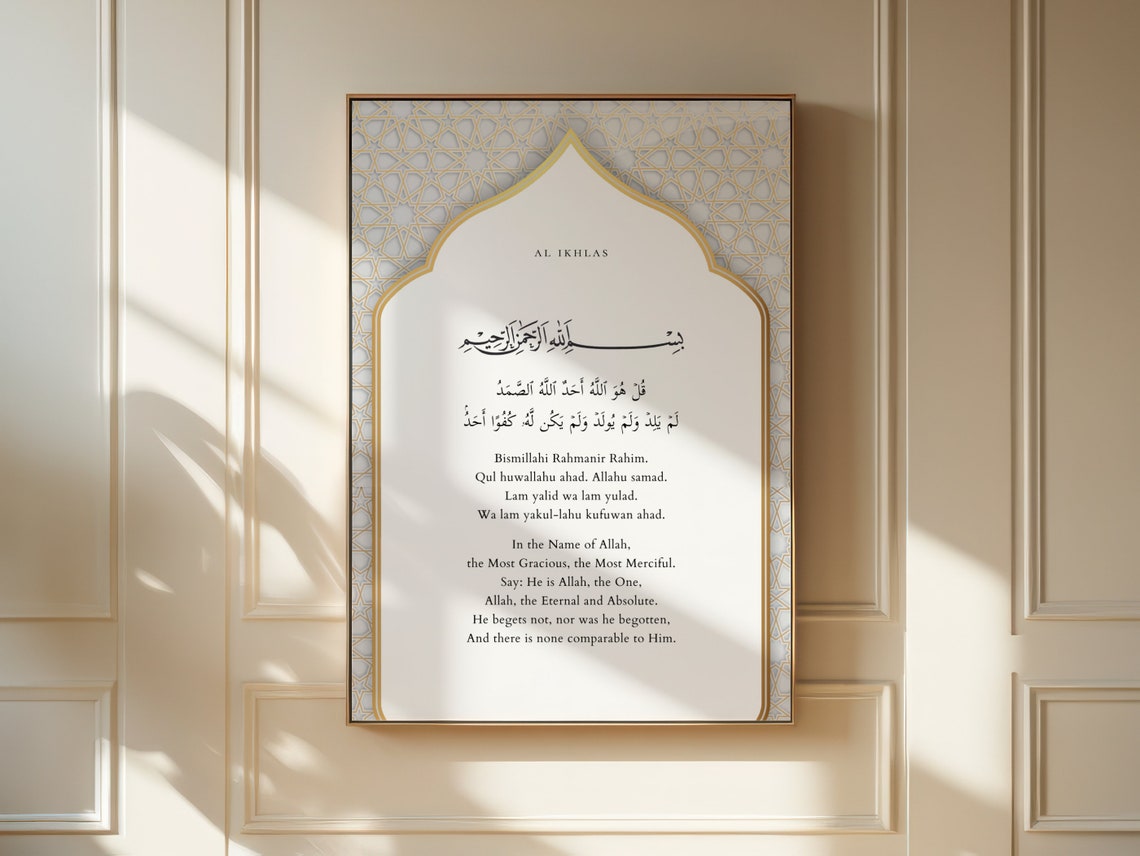 AL IKHLAS
بِسْمِ اللَّهِ الرَّحْمَٰنِ الرَّحِيمِ
قُلۡ هُوَ ٱللَّهُ أَحَدٌ ٱللَّهُ ٱلصَّمَدُ
لَمۡ يَلِدۡ وَلَمۡ يُولَدۡ وَلَمۡ يَكُن لَّهُۥ كُفُوًا أَحَدُۢ
Bismillahi Rahmanir Rahim.
Qul huwallahu ahad. Allahu samad.
Lam yalid wa lam yulad.
Wa lam yakul-lahu kufuwan ahad.
In the Name of Allah,
the Most Gracious, the Most Merciful.
Say: He is Allah, the One,
Allah, the Eternal and Absolute.
He begets not, nor was he begotten,
And there is none comparable to Him.